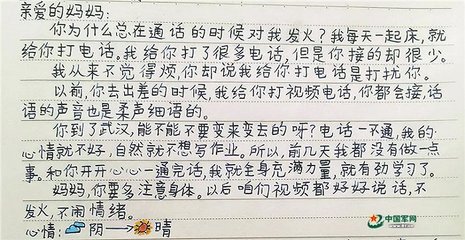 亲爱的妈妈:
你为什么总在通话的时候对我发火?我每天一起床,就
给你打电话。我给你打了很多电话,但是你接的却很少。
我从来不觉得烦,你却说我给你打电话是打扰你。
以前,你去出差的时候,我给你打视频电话,你都会接,话
语的声音也是柔声细语的。
你到了武汉,能不能不要变来变去的呀?电话一不通,我的
心情就不好,自然就不想写作业。所以,前几天我都没有做一点
事。和你开开心心一通完话,我就全身充满力量,就有劲学习了。
妈妈,你要多注意身体。以后咱们视频都好好说话,不
发火,不闹情绪。
心情:阴→晴
中国军网